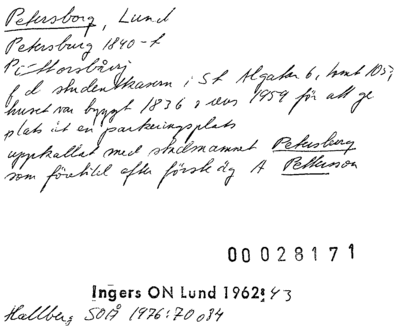 Petersborg, Lund
Petersburg 1840-t
f d studentkasern i St Algatan 6, tomt 105;
huset var byggt 1836 o revs 1959 för att ge
plats åt en parkeringsplats
uppkallat med stadsnamnet Petersburg
som förebild efter förste äg A Pettersson
00028171
Ingers ON Lund 1962:43
Hallberg SOÅ 1976:70 o 84